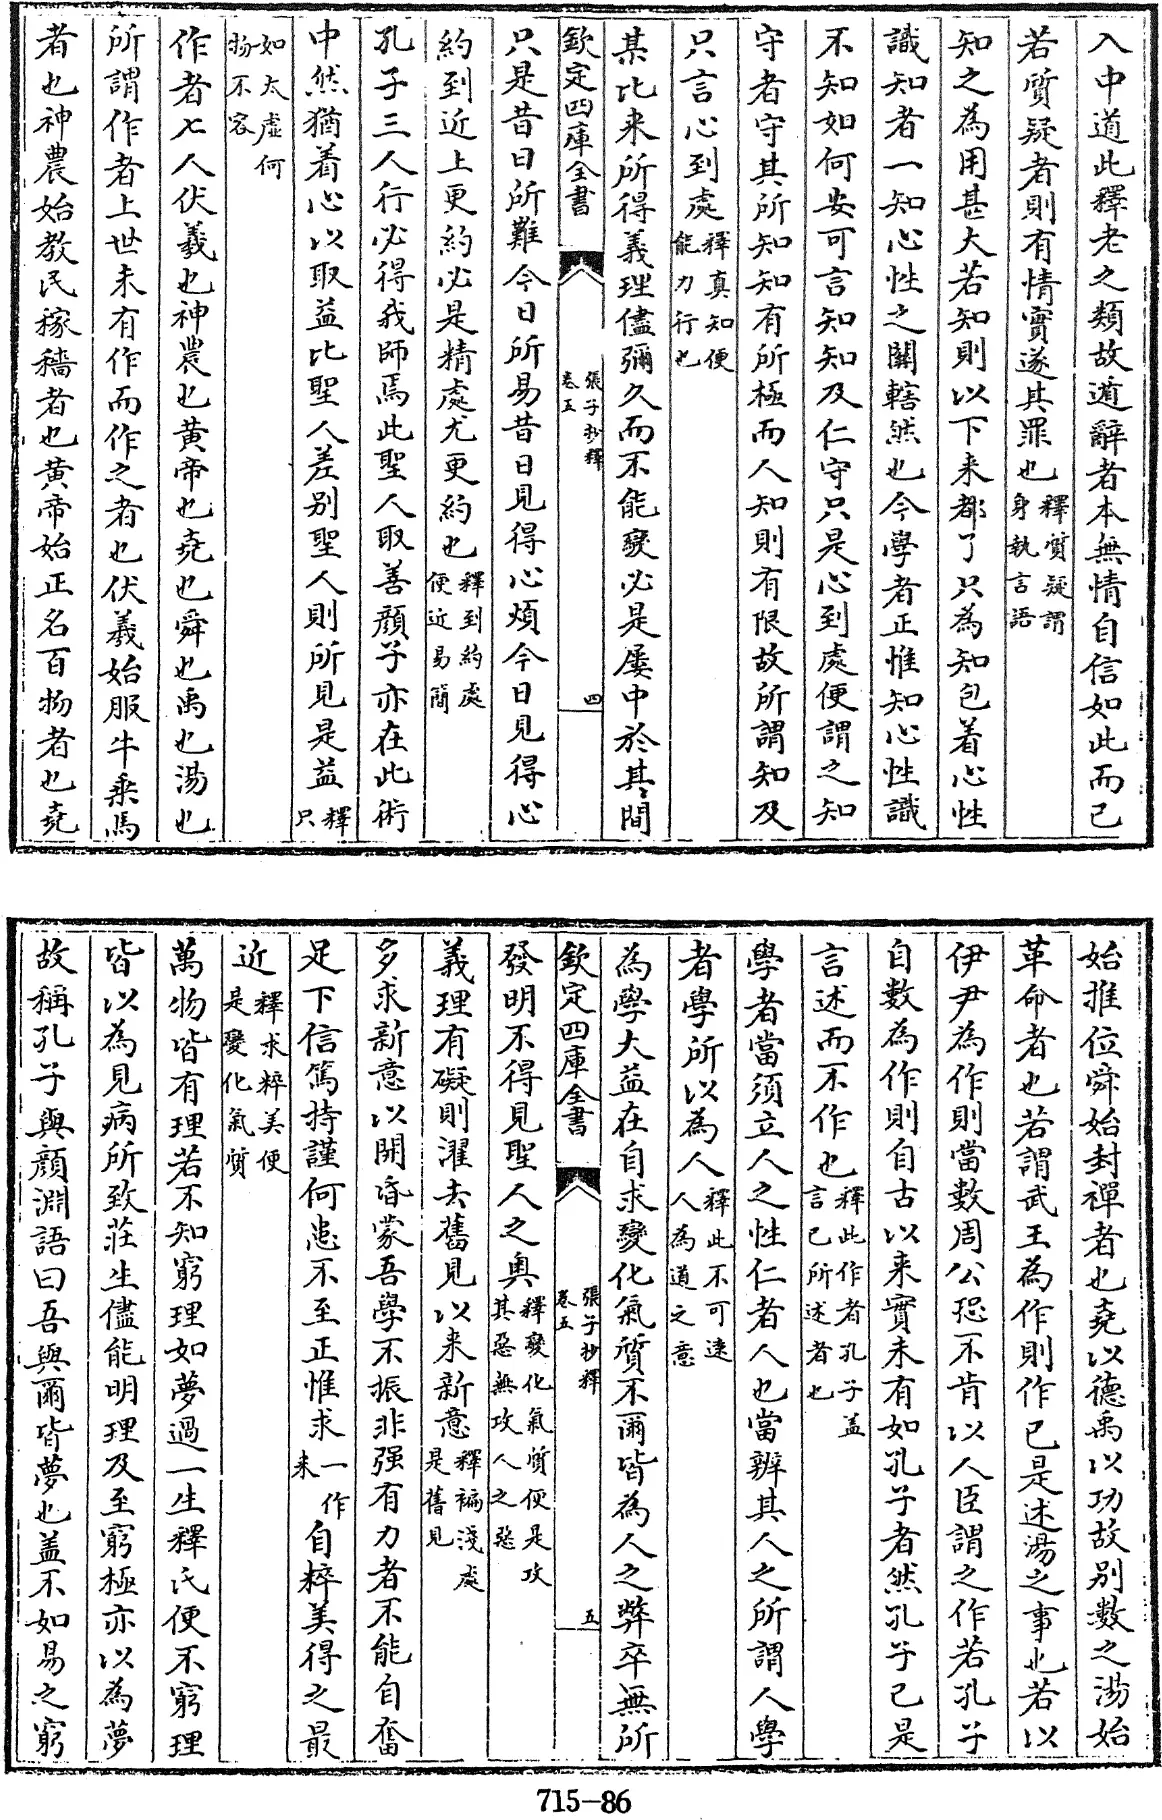 入中道此釋老之類故遁辭者本無情自信如此而已
若質疑者則有情實遂其罪也釋質疑謂身執言語
知之為用甚大若知則以下來都了只為知包着心性
識知者一知心性之關轄然也今學者正惟知心性識
不知如何安可言知知及仁守只是心到處便謂之知
守者守其所知知有所極而人知則有限故所謂知及
只言心到處釋真知便能力行也
某比來所得義理儘彌久而不能變必是屢中於其間
欽定四庫全書 張子抄釋 卷五 四
只是昔日所難今日所易昔日見得心煩今日見得心
約到近上更約必是精處尤更約也釋到約處便近易簡
孔子三人行必得我師焉此聖人取善顔子亦在此術
中然猶着心以取益比聖人差别聖人則所見是益釋只
如太虛何物不容
作者七人伏羲也神農也黄帝也堯也舜也禹也湯也
所謂作者上世未有作而作之者也伏羲始服牛乘馬
者也神農始教民稼穡者也黄帝始正名百物者也堯
始推位舜始封禪者也堯以德禹以功故别數之湯始
革命者也若謂武王為作則作已是述湯之事也若以
伊尹為作則當數周公恐不肯以人臣謂之作若孔子
自數為作則自古以來實未有如孔子者然孔子已是
言述而不作也釋此作者孔子盖言已所述者也
學者當須立人之性仁者人也當辨其人之所謂人學
者學所以為人釋此不可遠人為道之意
為學大益在自求變化氣質不爾皆為人之弊卒無所
欽定四庫全書 張子抄釋 卷五 五
發明不得見聖人之奥釋變化氣質便是攻其惡無攻人之惡
義理有礙則濯去舊見以來新意釋褊淺處是舊見
多求新意以開昏蒙吾學不振非强有力者不能自奮
足下信篤持謹何患不至正惟求一作來自粹美得之最
近釋求粹美便是變化氣質
萬物皆有理若不知窮理如夢過一生釋氏便不窮理
皆以為見病所致莊生儘能明理及至窮極亦以為夢
故稱孔子與顔淵語曰吾與爾皆夢也盖不如易之窮
715-86